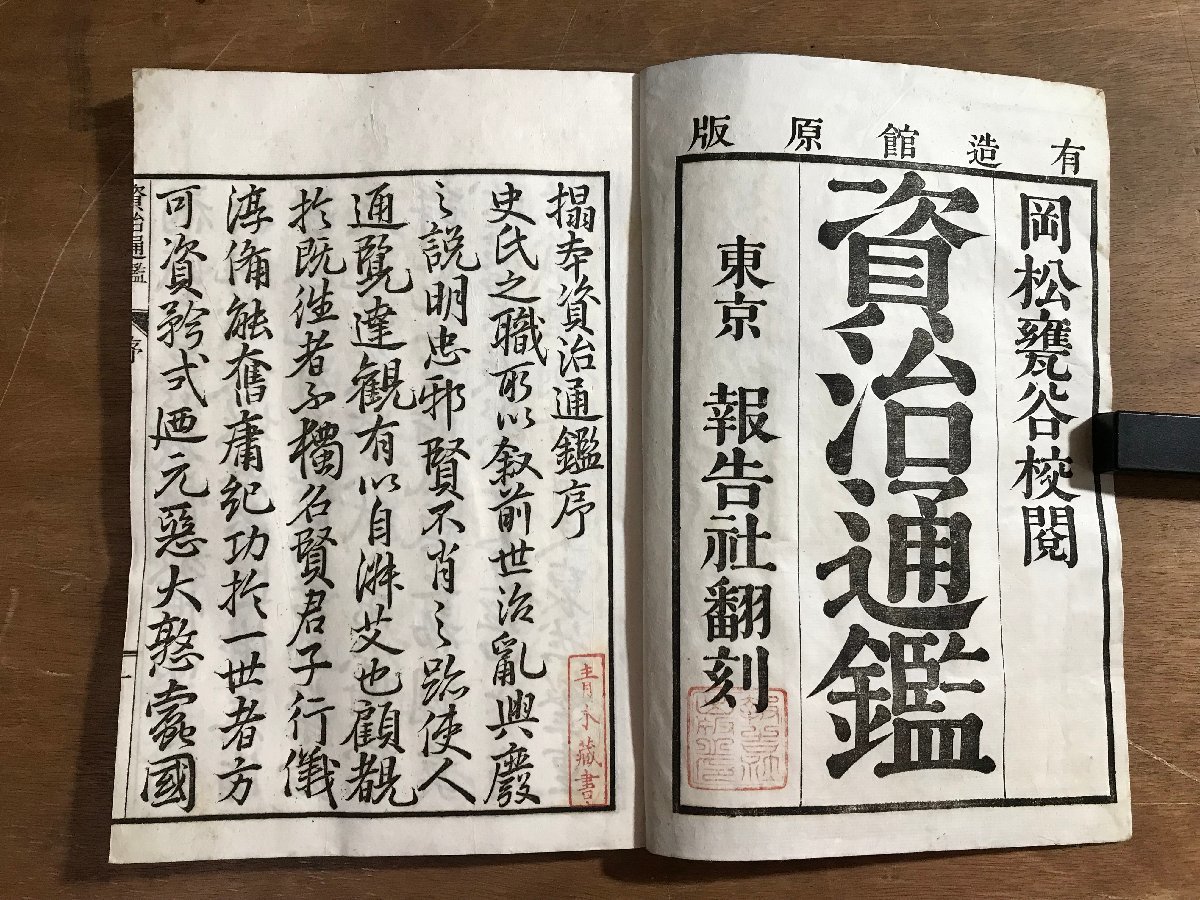 有造館原版
岡松甕谷校閲
資治通鑑
東京 報告社翻刻
搨本資治通鑑序
史氏之職所以叙前世治亂興廢
之説明忠邪賢不肖之跡使人
通覽達觀有以自艾也顧覩
於既往者不獨名賢君子行儀
淳備能奮庸紀功於一世者方
可資矜式迺元惡大憝蠹國
青木藏書
資治通鑑 序 一